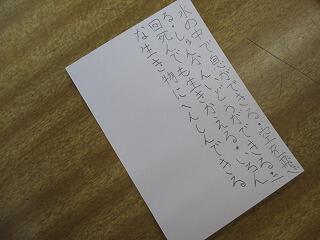 水の中で息ができる・空を飛べ
る・しゅんかんいどうができる・二
回死んでも生きかえる・いろん
な生き物にへんしんできる